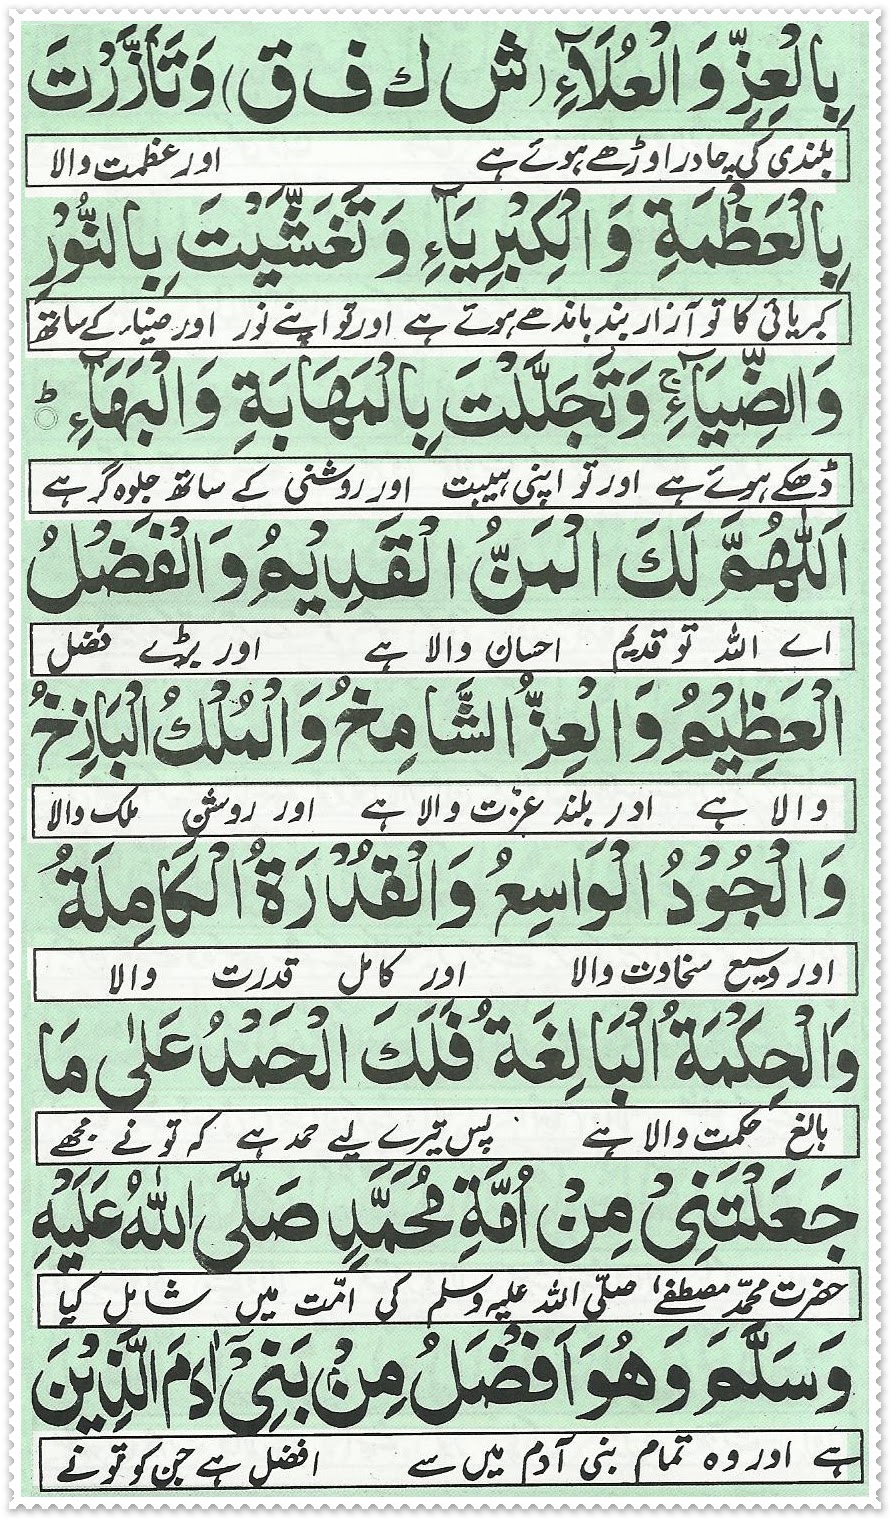 بِالْعِزِّ وَ الْعُلَآءِ (ش ك ف ق) وَ تَأَزَّرْتَ
بلندی کی چادر اوڑھے ہوئے ہے اور عظمت والا
بِالْعَظْمَةِ وَ الْكِبْرِيَآءِ وَ تَغَشَّيْتَ بِالنُّوْرِ
کبریائی کا تو آزار بند باندھے ہوئے ہے اور تو اپنے نور اور ضیاء کے ساتھ
وَ الضِّيَآءِ ج وَ تَجَلَّلْتَ بِالْمَهَابَةِ وَ الْبَهَآءِ ط
ڈھکے ہوئے ہے اور تو اپنی ہیبت اور روشنی کے ساتھ جلوہ گر ہے
اَللّٰهُمَّ لَكَ الْمَنُّ الْقَدِيْمُ وَ الْفَضْلُ
اے اللہ تو قدیم احسان والا ہے اور بڑے فضل
الْعَظِيْمُ وَ الْعِزُّ الشَّامِخُ وَ الْمُلْكُ الْبَازِخُ
والا ہے اور بلند عزت والا ہے اور روشن ملک والا
وَ الْجُوْدُ الْوَاسِعُ وَ الْقُدْرَةُ الْكَامِلَةُ
اور وسیع سخاوت والا اور کامل قدرت والا
وَ الْحِكْمَةُ الْبَالِغَةُ فَلَكَ الْحَمْدُ عَلٰى مَا
بالغ حکمت والا ہے پس تیرے لیے حمد ہے کہ تو نے مجھے
جَعَلْتَنِىْ مِنْ اُمَّةِ مُحَمَّدٍ صَلَّى اللّٰهُ عَلَيْهِ
حضرت محمّد مصطفےٰ صلّی اللہ علیہ وسلم کی امّت میں شامل کیا
وَسَلَّمَ وَ هُوَ اَفْضَلُ مِنْ بَنِىْٓ اٰدَمَ الَّذِيْنَ
ہے اور وہ تمام بنی آدم میں سے افضل ہے جن کو تو نے